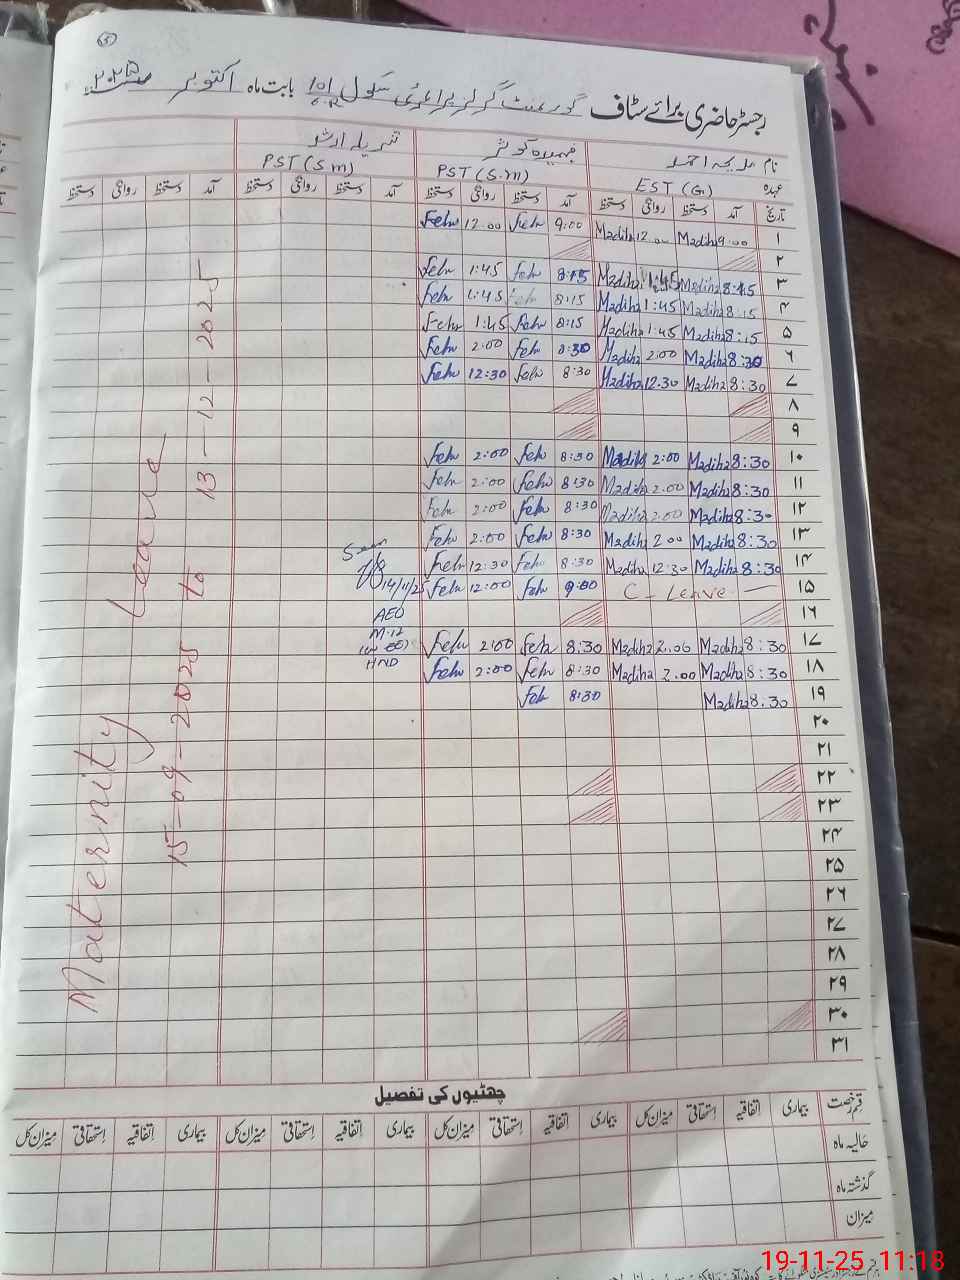 رجسٹر حاضری برائے سٹاف گورنمنٹ گرلز پرائمری سکول 101/6.R بابت ماہ اکتوبر ۲۰۲۵
نام مدیحہ احمد فہمیدہ کوثر
عہدہ EST (G) PST (S.m) PST (S.m)
تاریخ آمد دستخط روانگی دستخط آمد دستخط روانگی دستخط آمد دستخط روانگی دستخط آمد دستخط روانگی دستخط
۱ 9:00 Madiha 12.00 Madiha 9:00 Feh 12.00 Feh
۲
۳ 8:15 Madiha 1:45 Madiha 8:15 Feh 1:45 Feh
۴ 8:15 Madiha 1:45 Madiha 8:15 Feh 1:45 Feh
۵ 8:15 Madiha 1:45 Madiha 8:15 Feh 1:45 Feh
۶ 8:30 Madiha 2:00 Madiha 8:30 Feh 2:00 Feh
۷ 8:30 Madiha 12.30 Madiha 8:30 Feh 12:30 Feh
۸
۹
۱۰ 8:30 Madiha 2:00 Madiha 8:30 Feh 2:00 Feh
۱۱ 8:30 Madiha 2.00 Madiha 8:30 Feh 2:00 Feh
۱۲ 8:30 Madiha 2.00 Madiha 8:30 Feh 2:00 Feh
۱۳ 8:30 Madiha 2.00 Madiha 8:30 Feh 2:00 Feh
۱۴ 8:30 Madiha 12:30 Madiha 8:30 Feh 12:30 Feh
۱۵ C - Leave — 9:00 Feh 12:00 Feh
۱۶
۱۷ 8:30 Madiha 2.00 Madiha 8:30 Feh 2:00 Feh
۱۸ 8:30 Madiha 2.00 Madiha 8:30 Feh 2:00 Feh
۱۹ 8.30 Madiha 8:30 Feh
۲۰
۲۱
۲۲
۲۳
۲۴
۲۵
۲۶
۲۷
۲۸
۲۹
۳۰
۳۱
Seen
14/11/25
AEO
M-12
HND
Maternity Leave
15-09-2025 to 13-12-2025
چھٹیوں کی تفصیل
قسم رخصت بیماری اتفاقیہ استحقاقی میزان کل بیماری اتفاقیہ استحقاقی میزان کل بیماری اتفاقیہ استحقاقی میزان کل بیماری اتفاقیہ استحقاقی میزان کل
حالیہ ماہ
گذشتہ ماہ
میزان
19-11-25 11:18